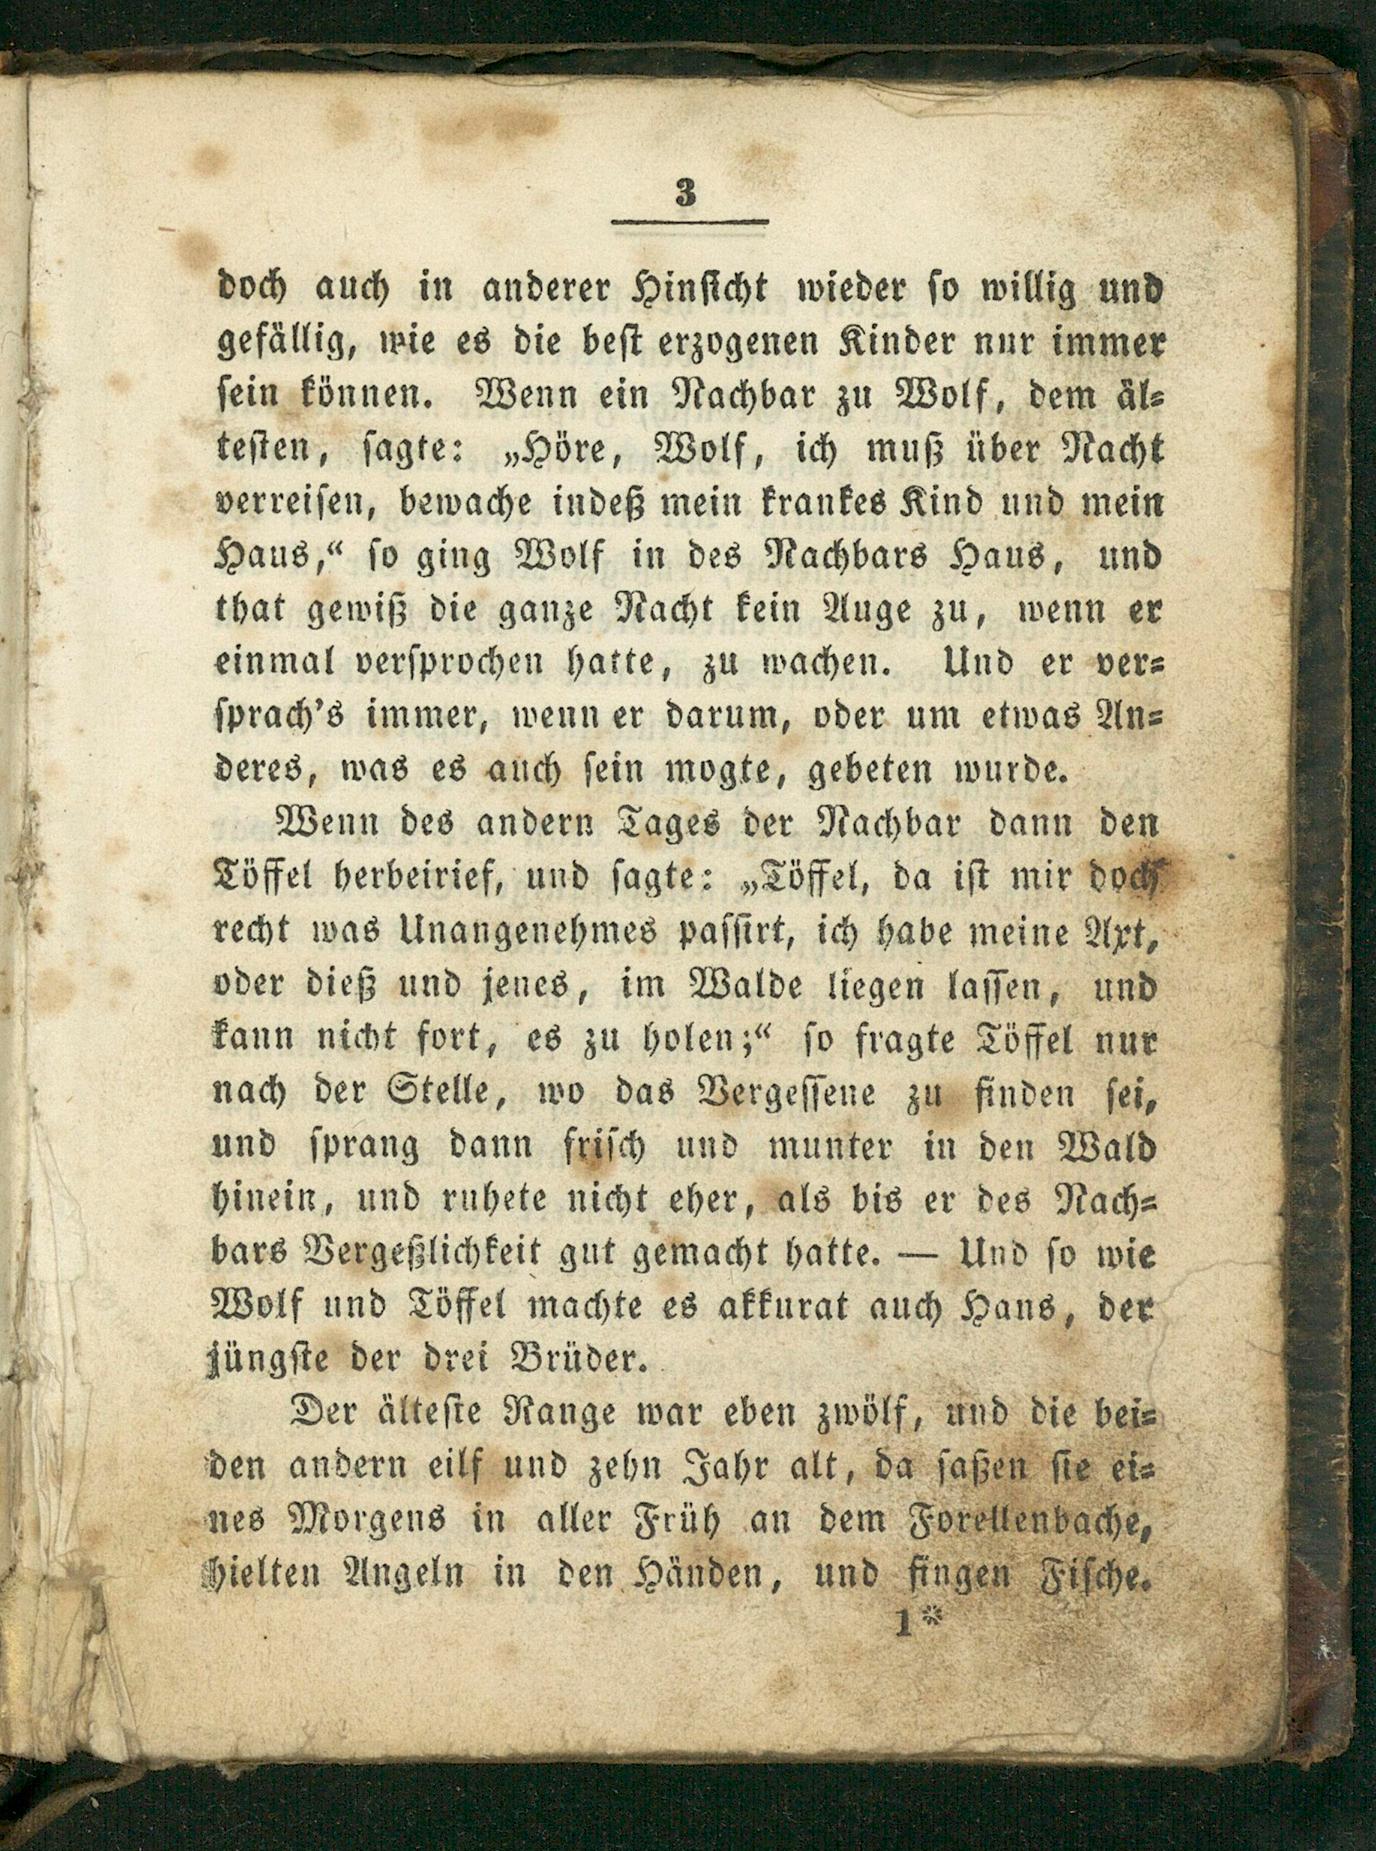 3
doch auch in anderer Hinsicht wieder so willig und
gefällig, wie es die best erzogenen Kinder nur immer
sein können. Wenn ein Nachbar zu Wolf, dem äl-
testen, sagte: „Höre, Wolf, ich muß über Nacht
verreisen, bewache indeß mein krankes Kind und mein
Haus,“ so ging Wolf in des Nachbars Haus, und
that gewiß die ganze Nacht kein Auge zu, wenn er
einmal versprochen hatte, zu wachen. Und er ver-
sprach's immer, wenn er darum, oder um etwas An-
deres, was es auch sein mogte, gebeten wurde.
Wenn des andern Tages der Nachbar dann den
Töffel herbeirief, und sagte: „Töffel, da ist mir doch
recht was Unangenehmes passirt, ich habe meine Axt,
oder dieß und jenes, im Walde liegen lassen, und
kann nicht fort, es zu holen;“ so fragte Töffel nur
nach der Stelle, wo das Vergessene zu finden sei,
und sprang dann frisch und munter in den Wald
hinein, und ruhete nicht eher, als bis er des Nach-
bars Vergeßlichkeit gut gemacht hatte. — Und so wie
Wolf und Töffel machte es akkurat auch Hans, der
jüngste der drei Brüder.
Der älteste Range war eben zwölf, und die bei-
den andern eilf und zehn Jahr alt, da saßen sie ei-
nes Morgens in aller Früh an dem Forellenbache,
hielten Angeln in den Händen, und fingen Fische.
1*